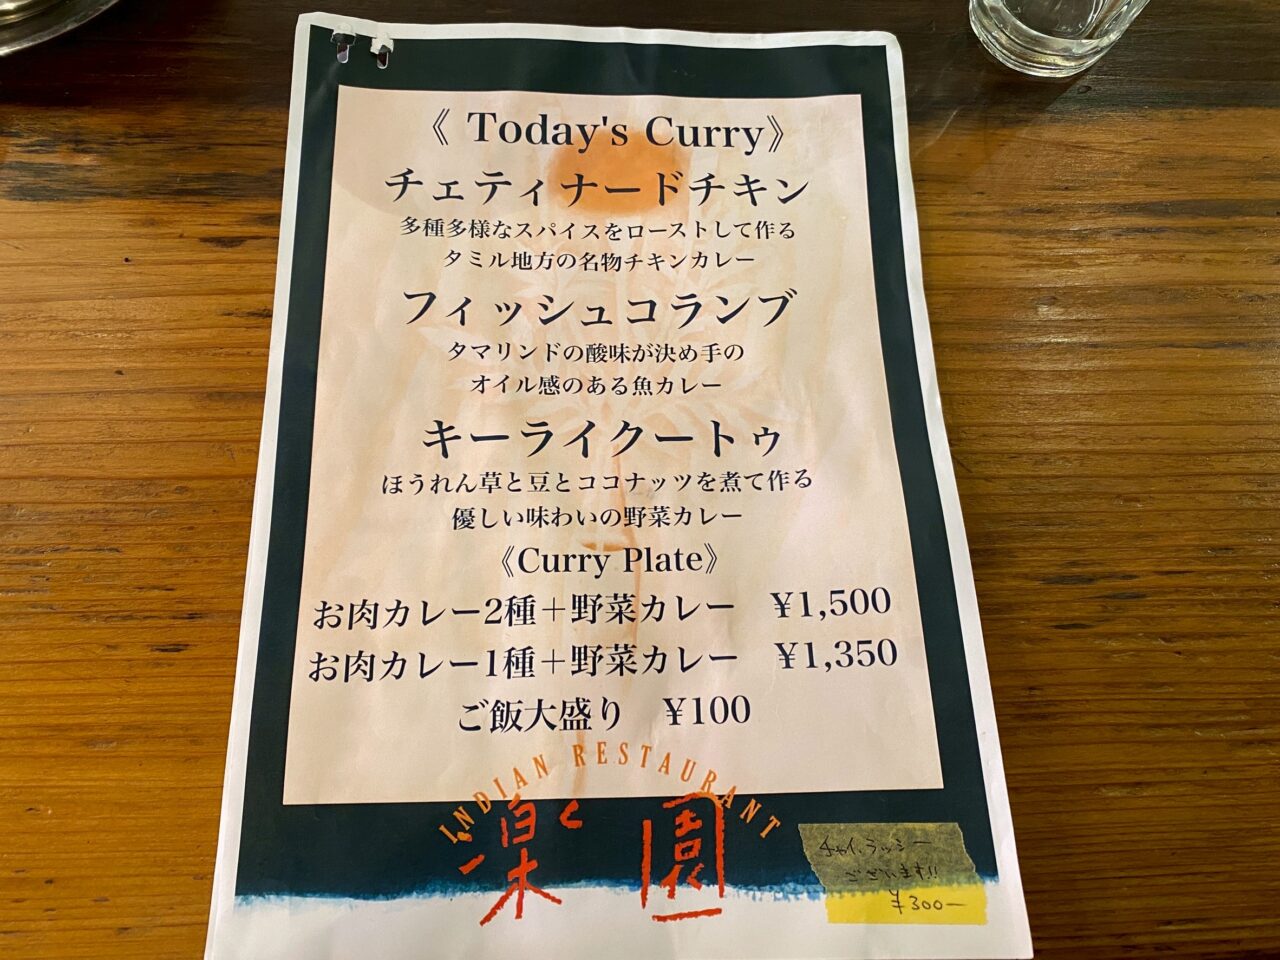 《 Today's Curry》
チェティナードチキン
多種多様なスパイスをローストして作る
タミル地方の名物チキンカレー
フィッシュコランブ
タマリンドの酸味が決め手の
オイル感のある魚カレー
キーライクートゥ
ほうれん草と豆とココナッツを煮て作る
優しい味わいの野菜カレー
《Curry Plate》
お肉カレー2種＋野菜カレー　¥1,500
お肉カレー1種＋野菜カレー　¥1,350
ご飯大盛り　¥100
INDIAN RESTAURANT
楽園
チャイ、ラッシー
ございます!!
¥300−